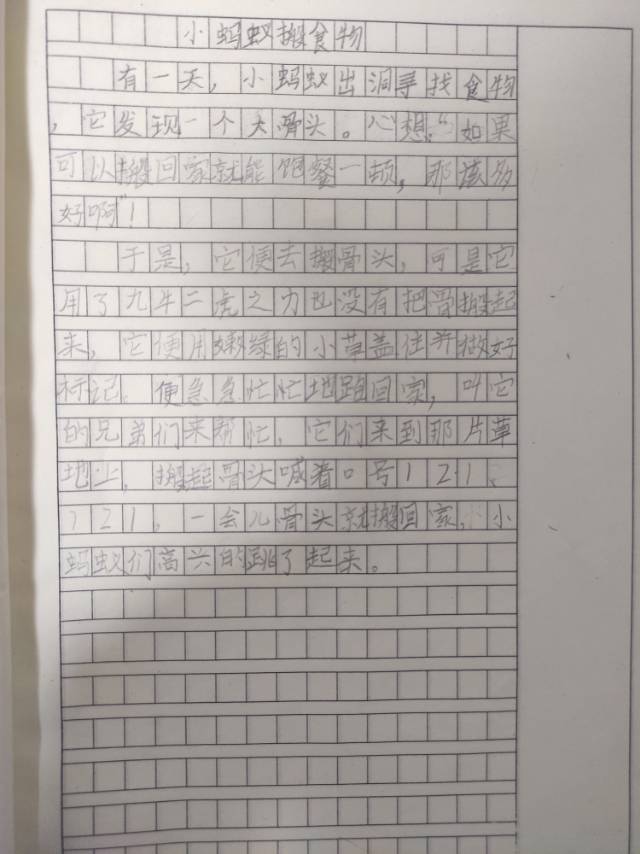 小蚂蚁搬食物
有一天，小蚂蚁出洞寻找食物
，它发现一个大骨头。心想：“如果
可以搬回家就能饱餐一顿，那该多
好啊”！
于是，它便去搬骨头，可是它
用了九牛二虎之力也没有把骨搬起
来，它便用嫩绿的小草盖住并做好
标记，便急急忙忙地跑回家，叫它
的兄弟们来帮忙，它们来到那片草
地上，搬起骨头喊着口号121、
121，一会儿骨头就搬回家，小
蚂蚁们高兴的跳了起来。